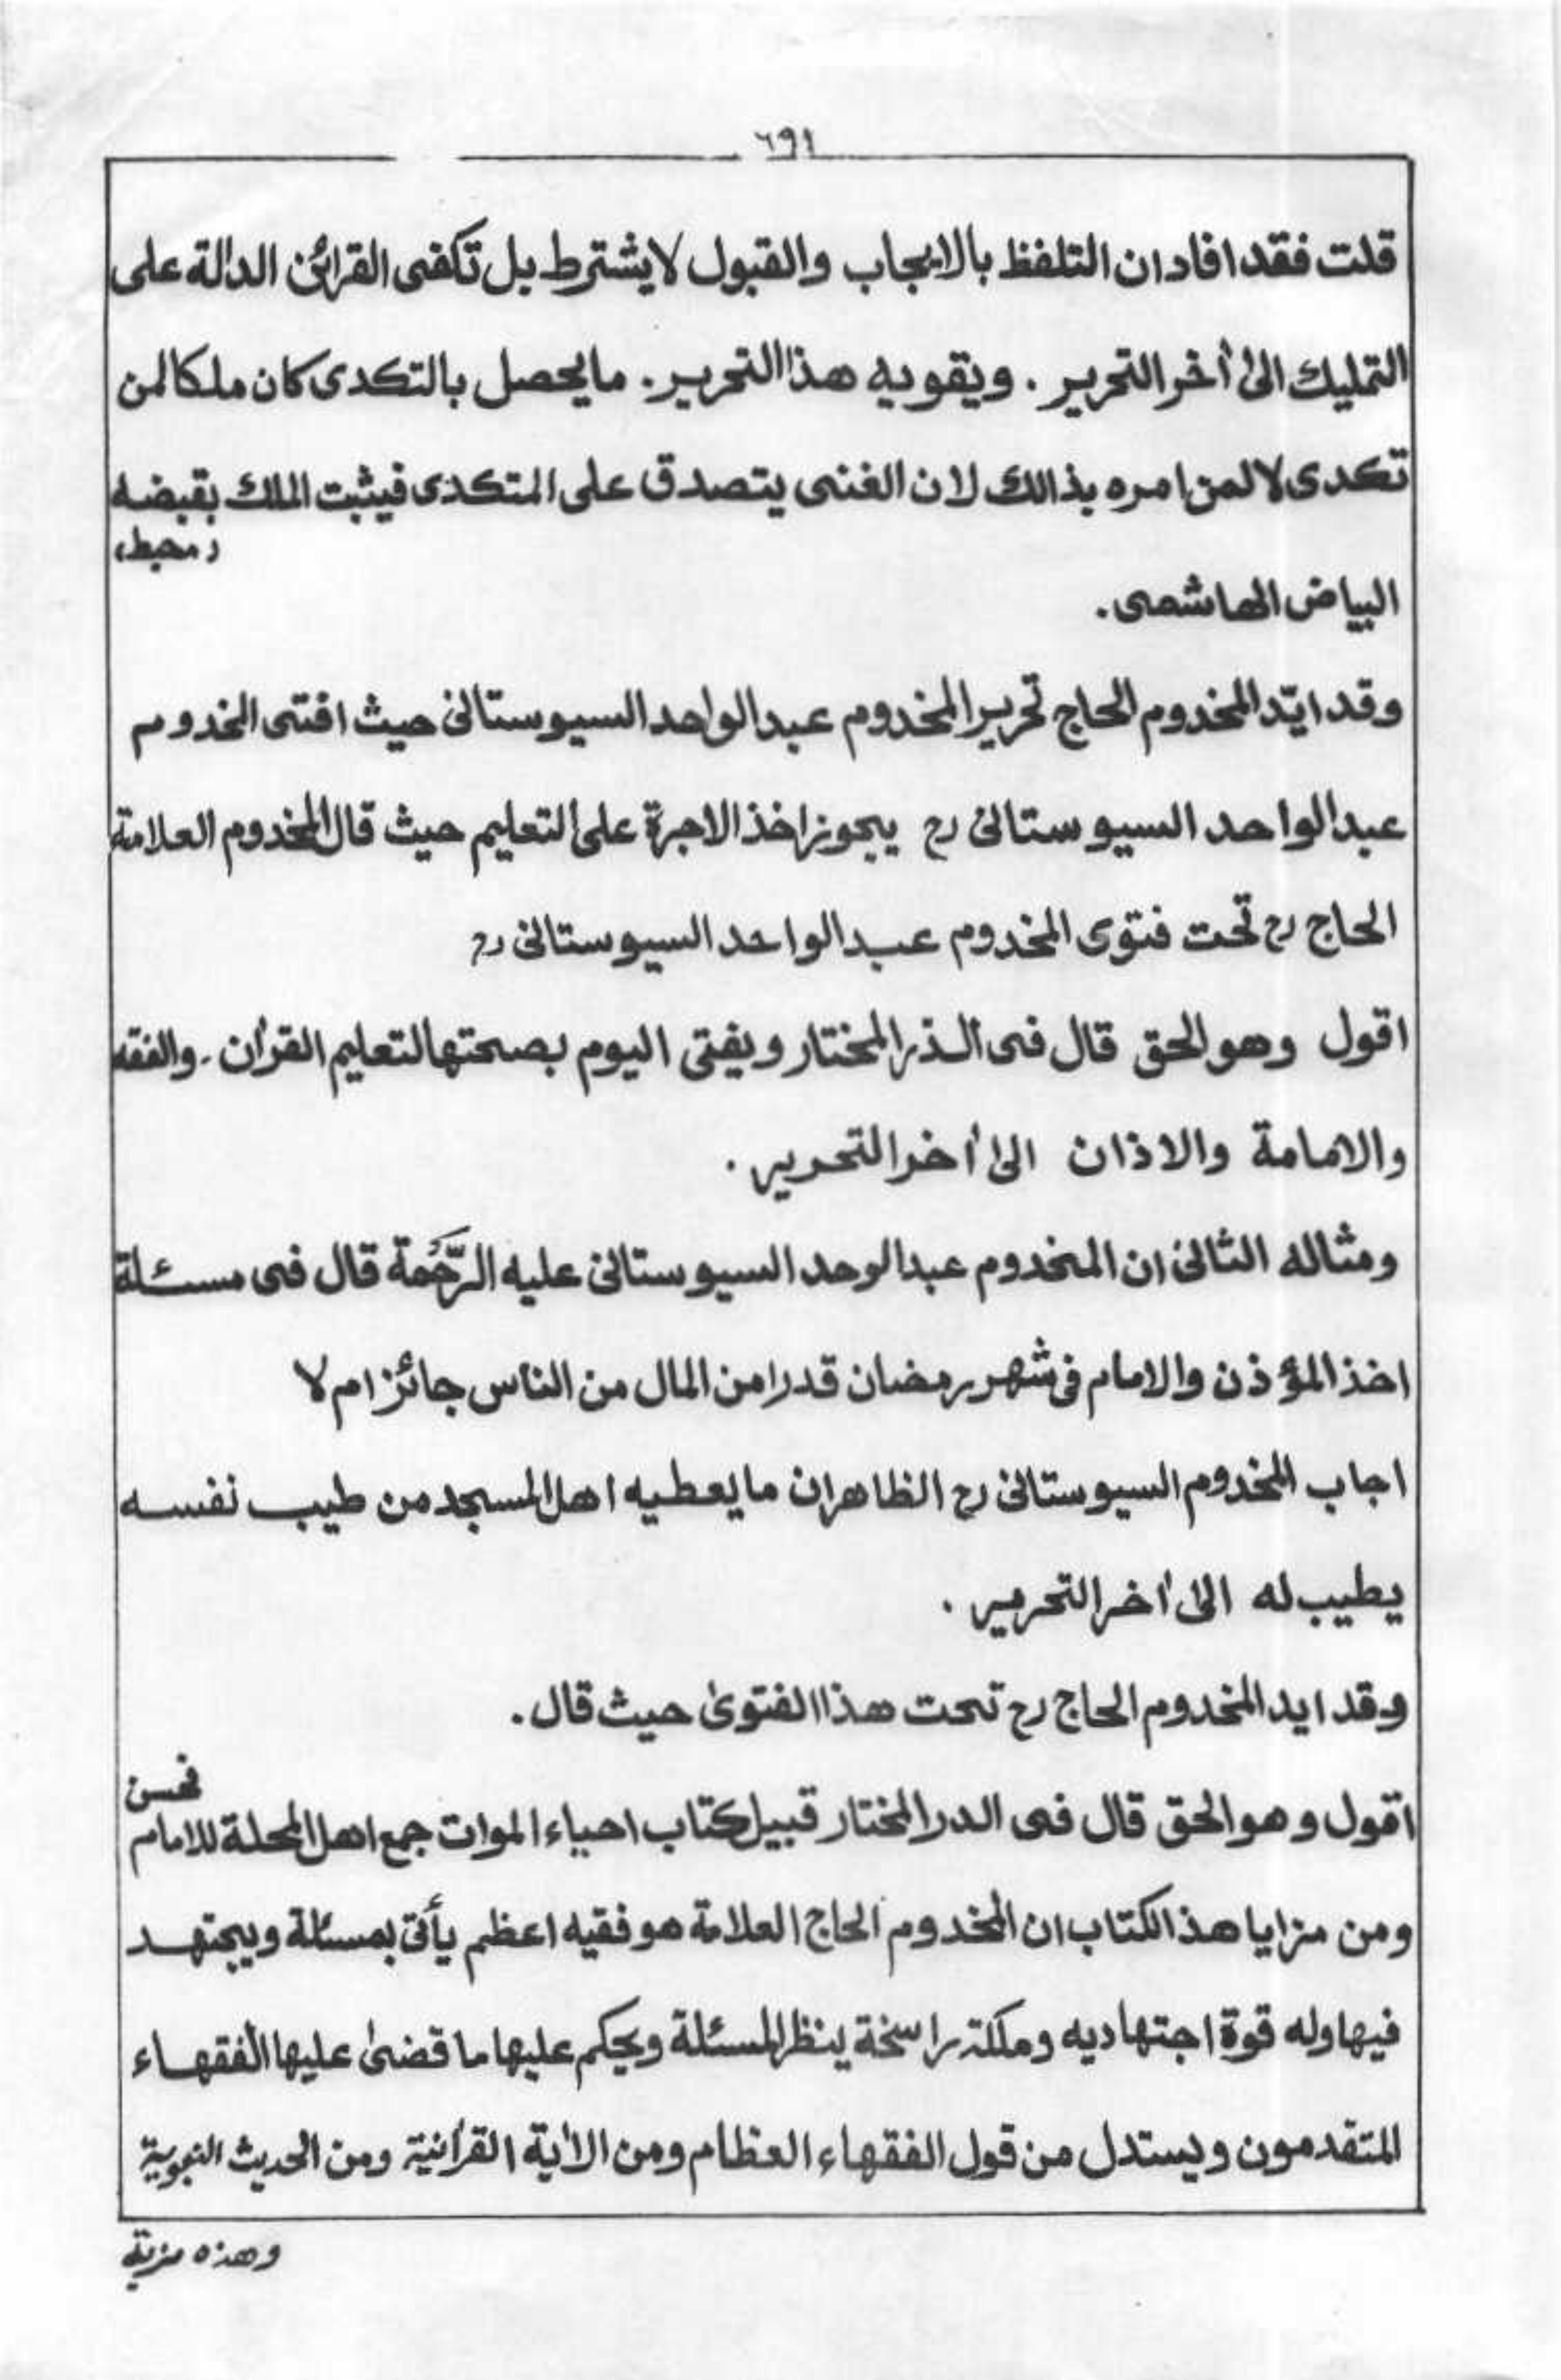 ٦٩١
قلت فقد افاد ان التلفظ بالايجاب والقبول لا يشترط بل تكفى القرائن الدالة على
التمليك الىٰ أخر التحرير . ويقويه هذا التحرير . ما يحصل بالتكدى كان ملكا لمن
تكدى لا لمن امره بذالك لان الغنى يتصدق على المتكدى فيثبت الملك بقبضه
(محيط)
البياض الهاشمى .
وقد ايّد المخدوم الحاج تحرير المخدوم عبد الواحد السيوستانى حيث افتى المخدوم
عبد الواحد السيوستانى رح يجوز اخذ الاجرة على التعليم حيث قال المخدوم العلامة
الحاج رح تحت فتوى المخدوم عبد الواحد السيوستانى رح
اقول وهو الحق قال فى الذر المختار ويفتى اليوم بصحتها لتعليم القرأن . والفقه
والامامة والاذان الىٰ أخر التحرير .
ومثاله الثانى ان المخدوم عبد الوحد السيوستانى عليه الرَّحْمَة قال فى مسئلة
اخذ المؤذن والامام فى شهر رمضان قدرا من المال من الناس جائز ام لا
اجاب المخدوم السيوستانى رح الظاهر ان ما يعطيه اهل المسجد من طيب نفسه
يطيب له الىٰ أخر التحرير .
وقد ايد المخدوم الحاج رح تحت هذا الفتوىٰ حيث قال .
اقول وهو الحق قال فى الدر المختار قبيل كتاب احياء الموات جمع اهل المحلة للامام فحسن
ومن مزايا هذ الكتاب ان المخدوم الحاج العلامة هو فقيه اعظم يأتى بمسئلة ويجتهد
فيها وله قوة اجتهاديه وملكة راسخة ينظر المسئلة ويحكم عليها ما قضىٰ عليها الفقهاء
المتقدمون ويستدل من قول الفقهاء العظام ومن الأية القرأنية ومن الحديث النبوية
وهذه مزية